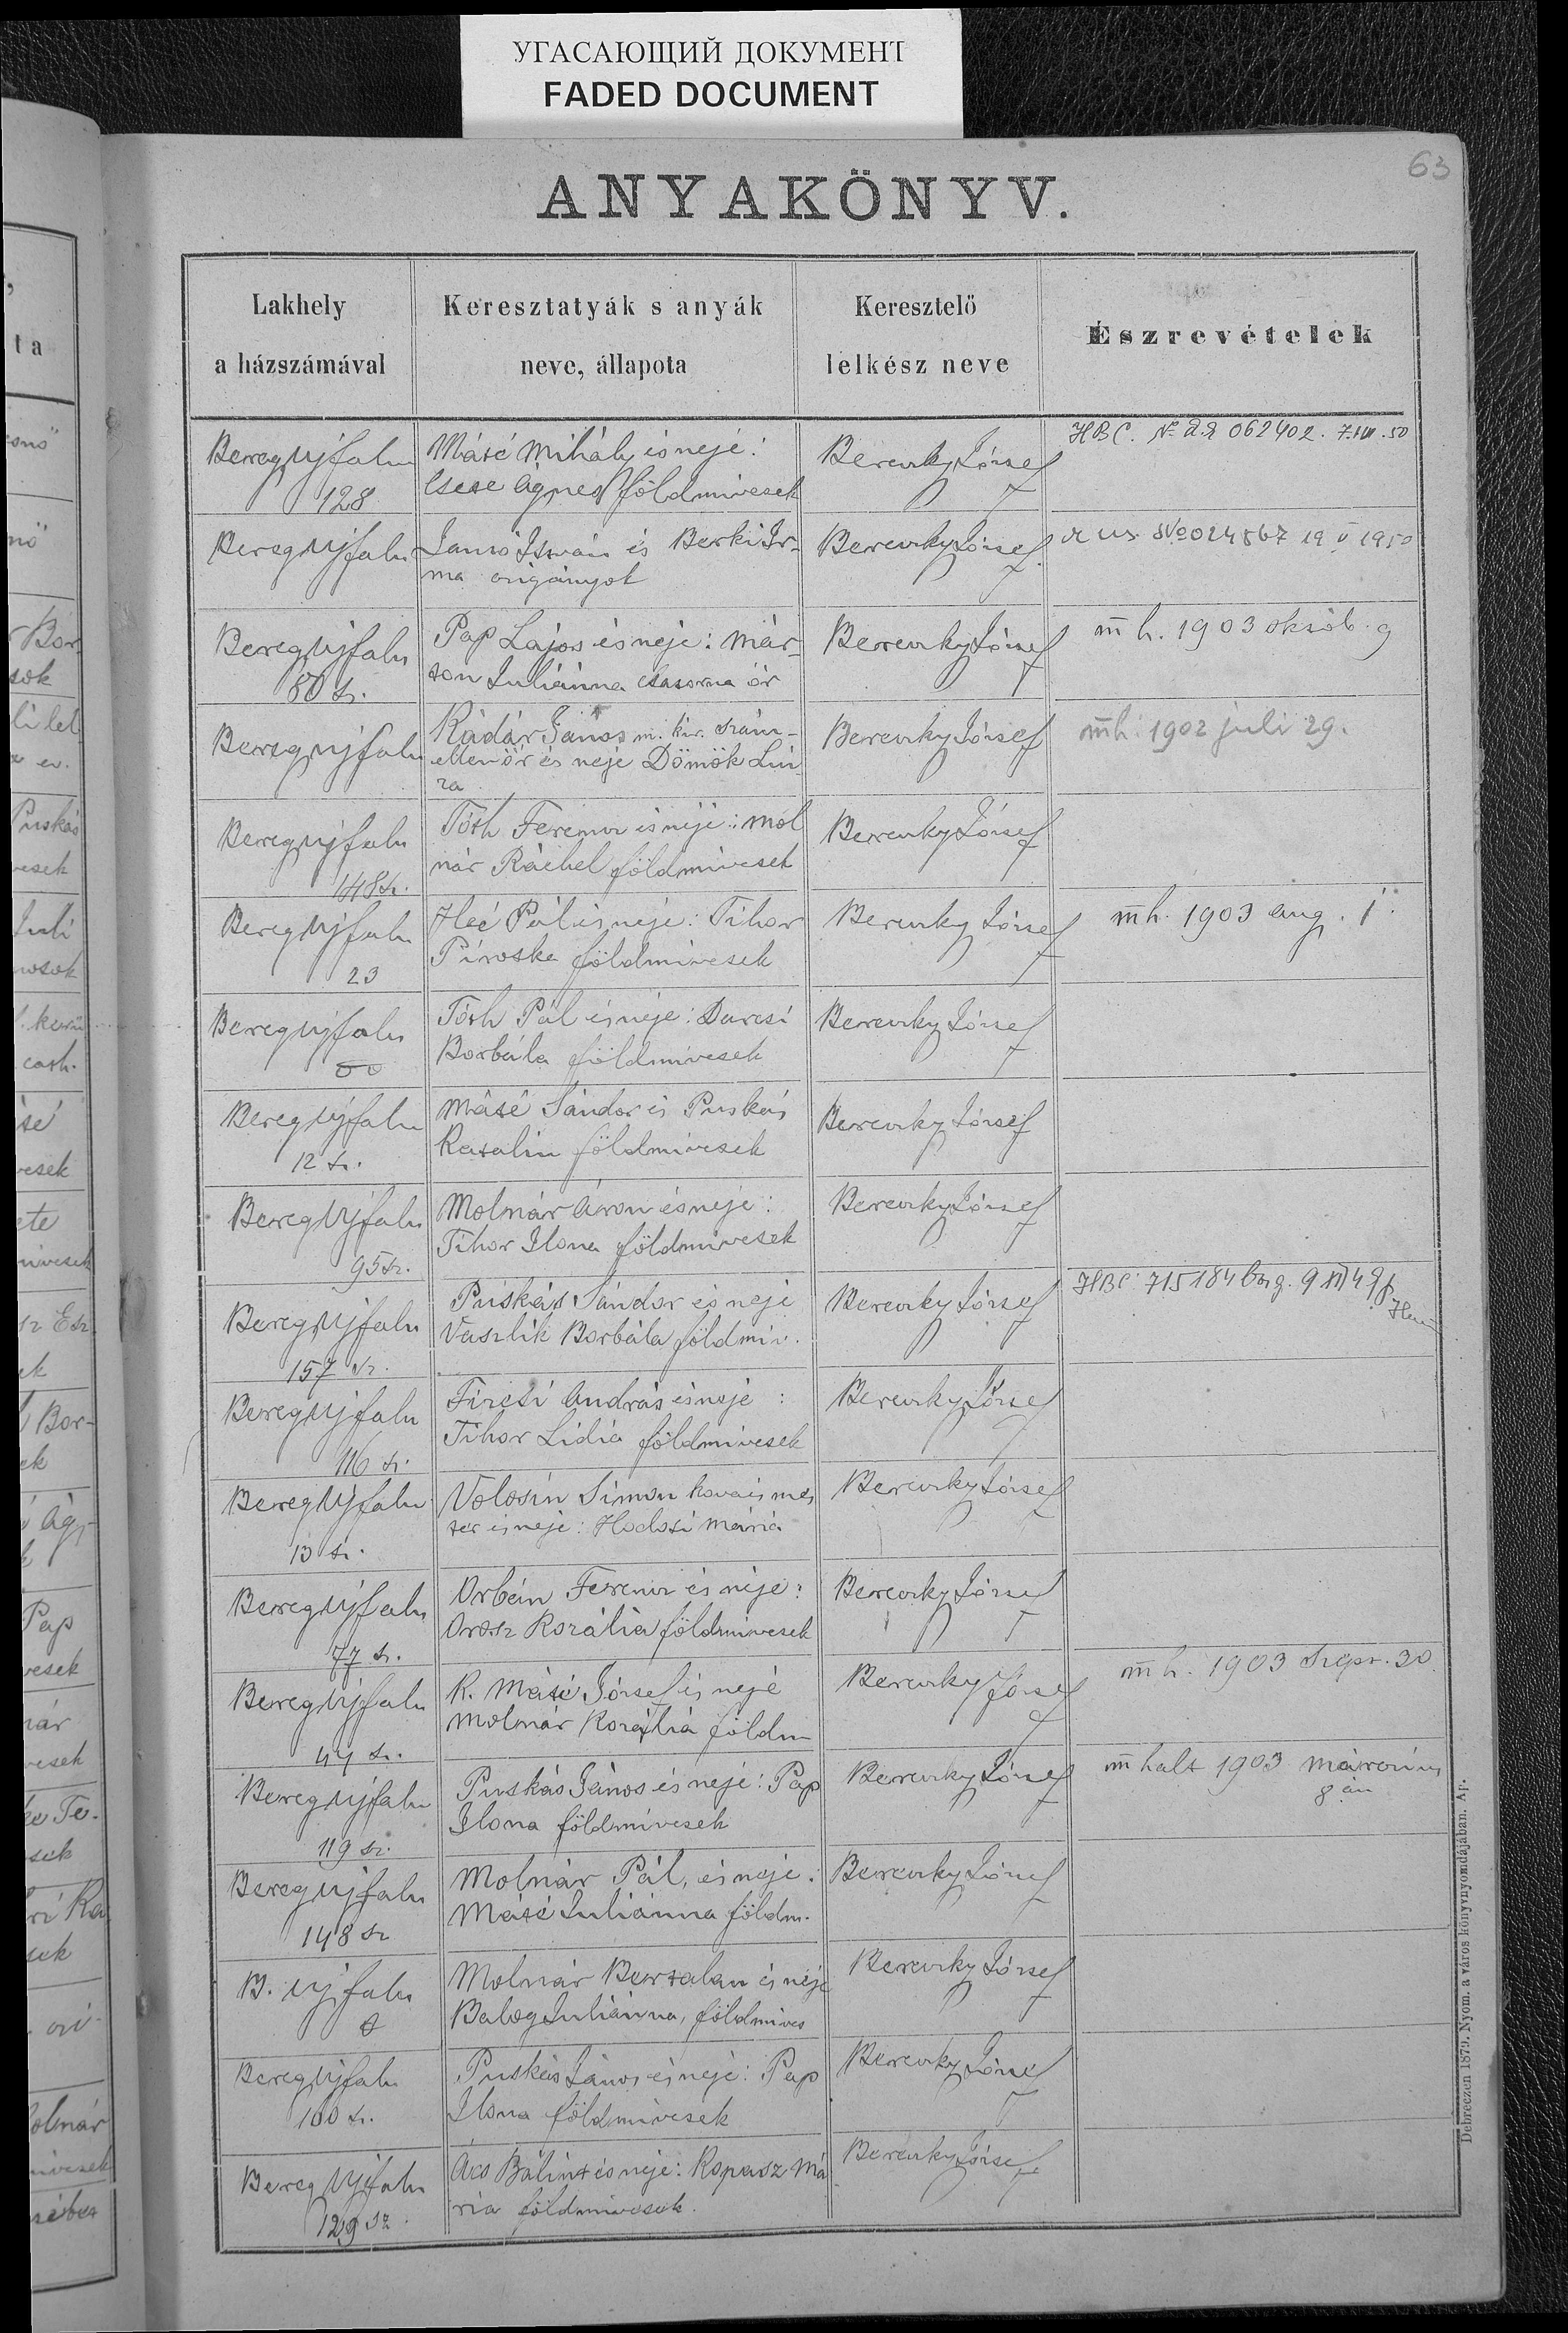 УГАСАЮЩИЙ ДОКУМЕНТ
FADED DOCUMENT
63
ANYAKÖNYV.
Lakhely
a házszámával
Keresztatyák s anyák
neve, állapota
Keresztelő
lelkész neve
Észrevételek
Bereg Ujfalu
128
Máté Mihály és neje:
Csese Ágnes földmivesek
Bereczky József
НВС. № 22 062402. 7.VIII.50
Bereg Ujfalu
Jancsó István és Berki Ir-
ma czigányok
Bereczky József
№ 024567 19 V 1950
Bereg Ujfalu
80 sz.
Pap Lajos és neje: Már-
ton Juliánna csatorna őr
Bereczky József
mh. 1903 októb. 9
Bereg Ujfalu
Kádár János m. kir. szám-
ellenőr és neje Dömök Lui-
za
Bereczky József
mh. 1902 juli 29.
Bereg Ujfalu
148 sz.
Tóth Ferencz és neje: Mol
nár Ráchel földmivesek
Bereczky József
Bereg Ujfalu
23
Hec Pál és neje: Tihor
Piroska földmivesek
Bereczky József
mh. 1903 aug. 1.
Bereg Ujfalu
Tóth Pál és neje: Darcsi
Borbála földmivesek
Bereczky József
Bereg Ujfalu
12 sz.
Máté Sándor és Puskás
Rozalin földmivesek
Bereczky József
Bereg Ujfalu
95 sz.
Molnár Áron és neje:
Tihor Ilona földmivesek
Bereczky József
Bereg Ujfalu
157 sz.
Puskás Sándor és neje
Vaszlik Borbála földmiv.
Bereczky József
НВС 715184
Bereg Ujfalu
116 sz.
Fircsi András és neje:
Tihor Lidia földmivesek
Bereczky József
Bereg Ujfalu
13 sz.
Volosin Simon kovács mes
ter és neje: Hodosi Mária
Bereczky József
Bereg Ujfalu
77 sz.
Orbán Ferencz és neje:
Orosz Rozália földmivesek
Bereczky József
Bereg Ujfalu
44 sz.
K. Máté József és neje
Molnár Rozália földm
Bereczky József
mh. 1903 Szept. 30.
Bereg Ujfalu
119 sz.
Puskás János és neje: Pap
Ilona földmivesek
Bereczky József
mhalt 1903 márczius
8 án
Bereg Ujfalu
148 sz
Molnár Pál, és neje:
Máté Juliánna földm.
Bereczky József
B. Ujfalu
Molnár Bertalan és neje
Balog Juliánna, földmives
Bereczky József
Bereg Ujfalu
100 sz.
Puskás János és neje: Pap
Ilona földmivesek
Bereczky József
Bereg Ujfalu
129 sz.
Ács Bálint és neje: Kopasz Má
ria földmivesek.
Bereczky József
Debreczen 1879. Nyom. a város könyvnyomdájában. Ap.